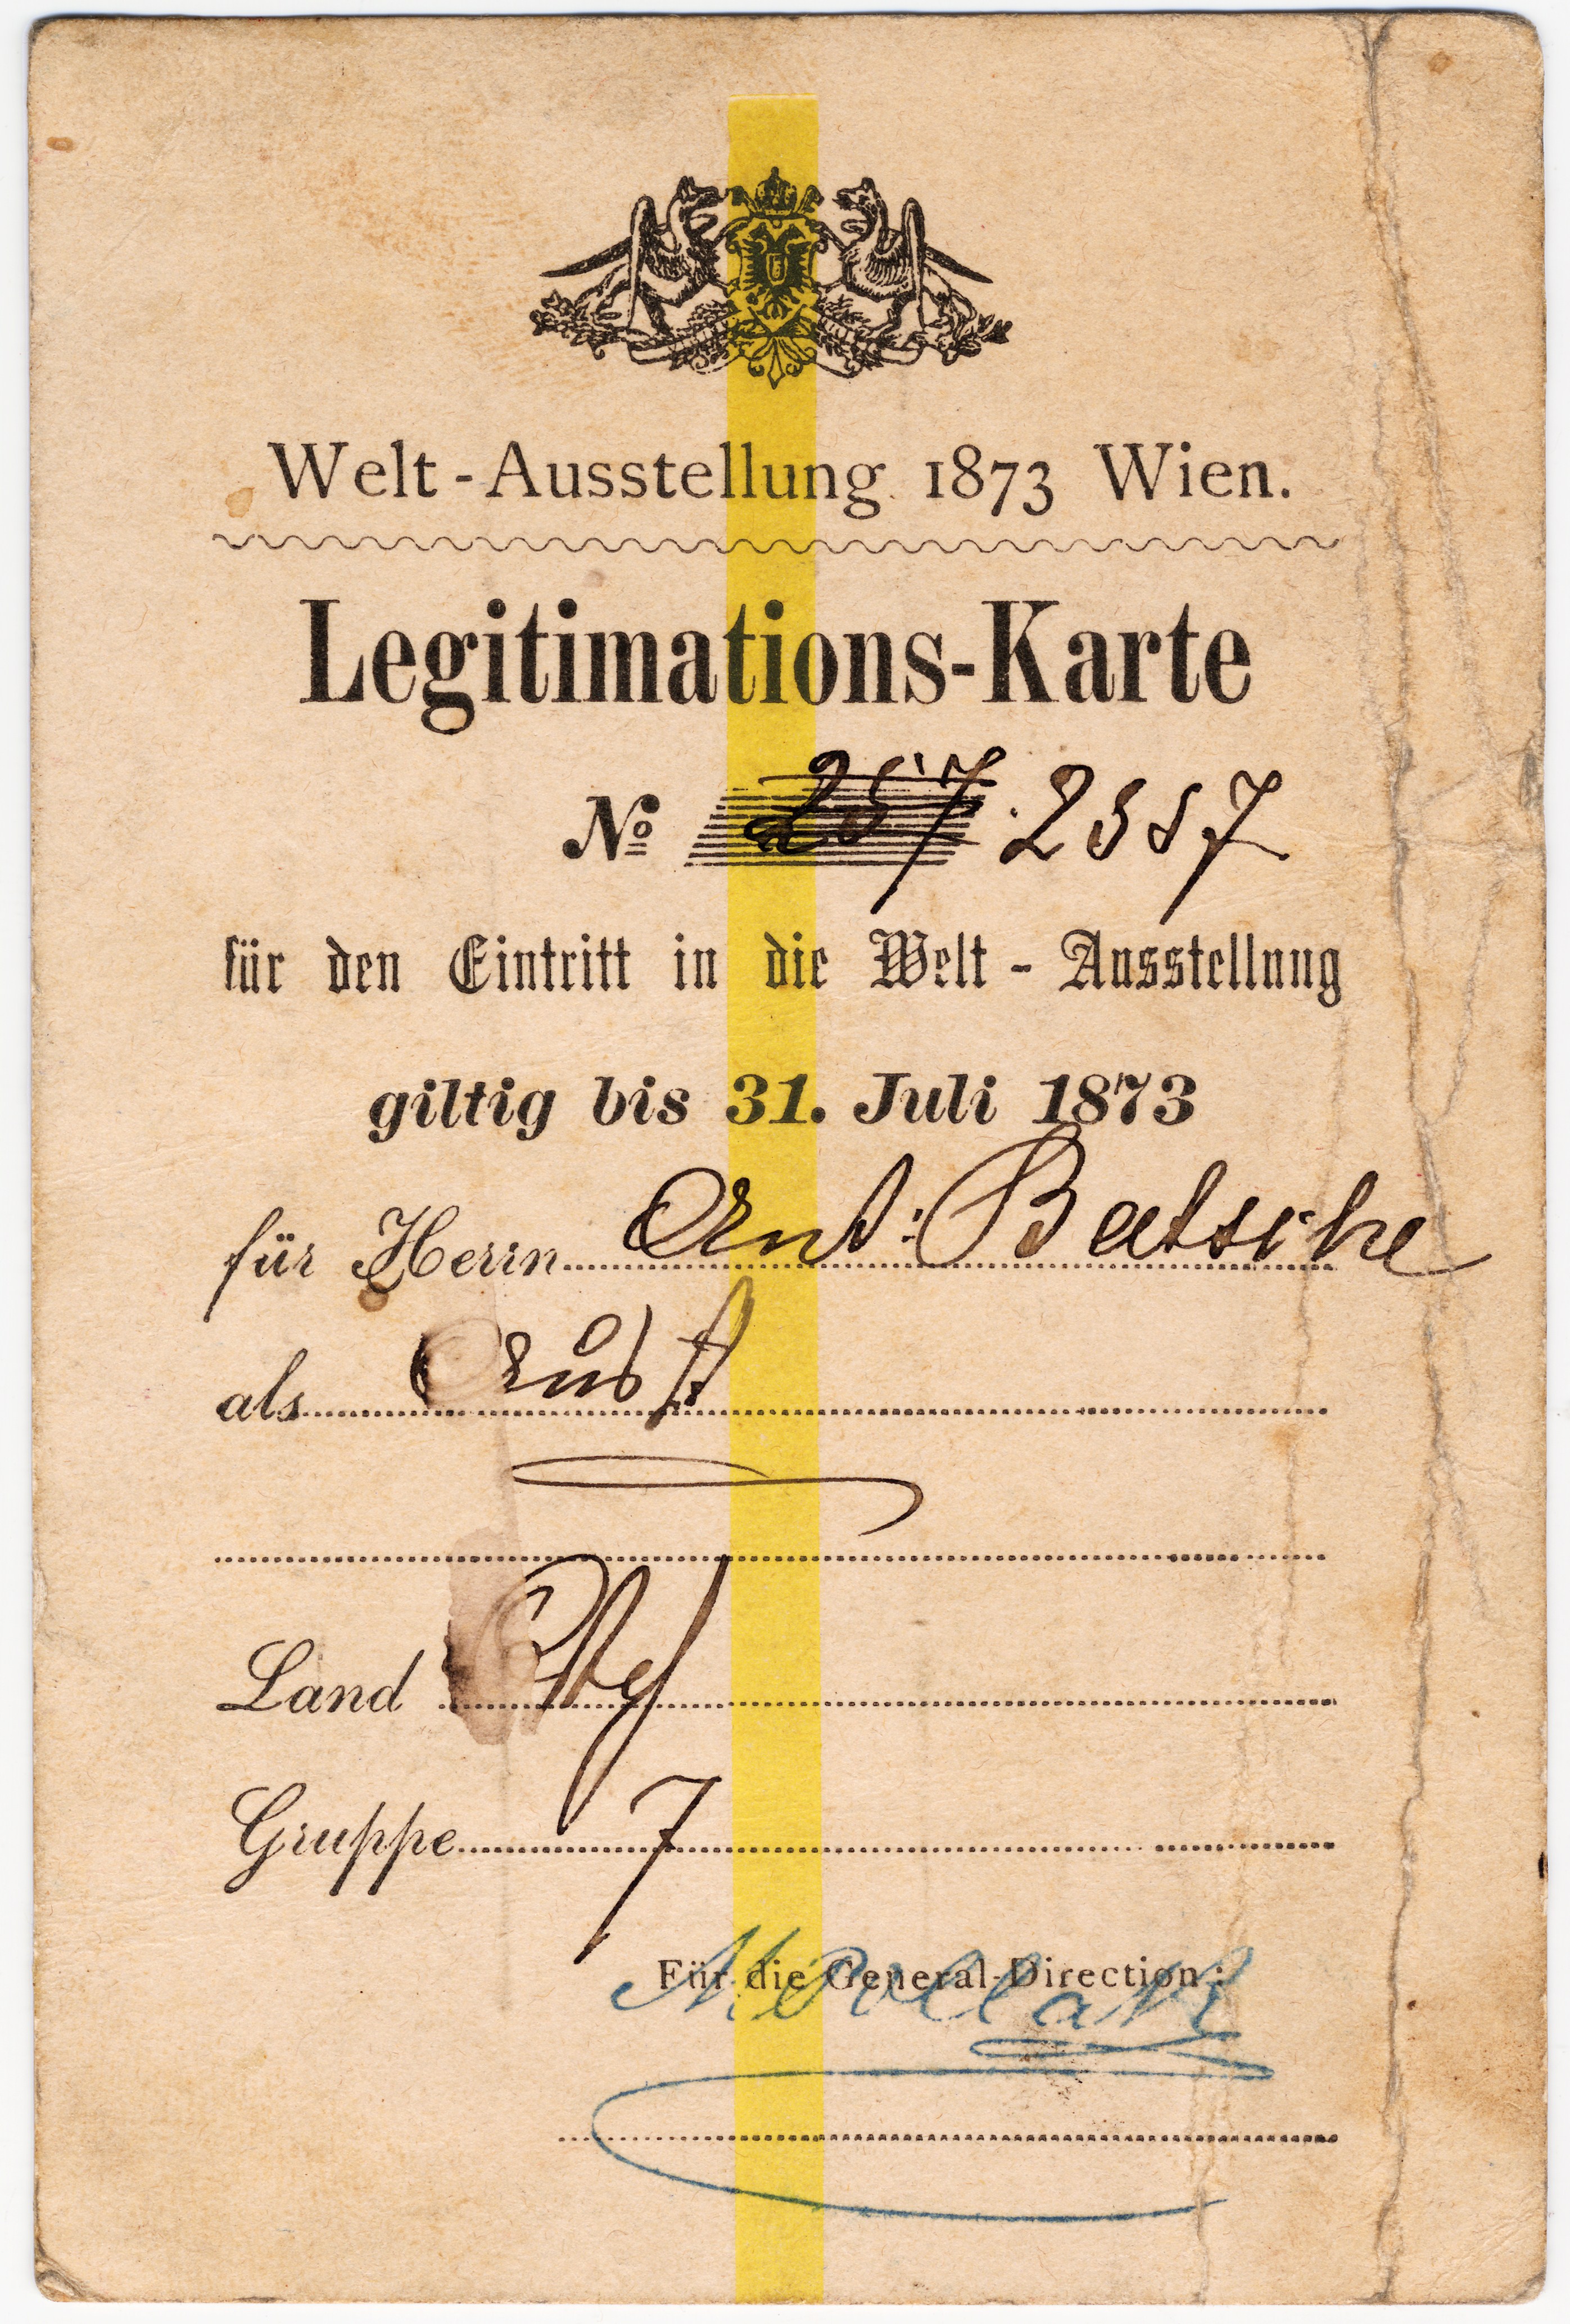 Welt-Ausstellung 1873 Wien.
Legitimations-Karte
No 257. 2557
für den Eintritt in die Welt-Ausstellung
giltig bis 31. Juli 1873
für Herrn Ant: Batsche
als
Land
Gruppe 7
Für die General-Direction: